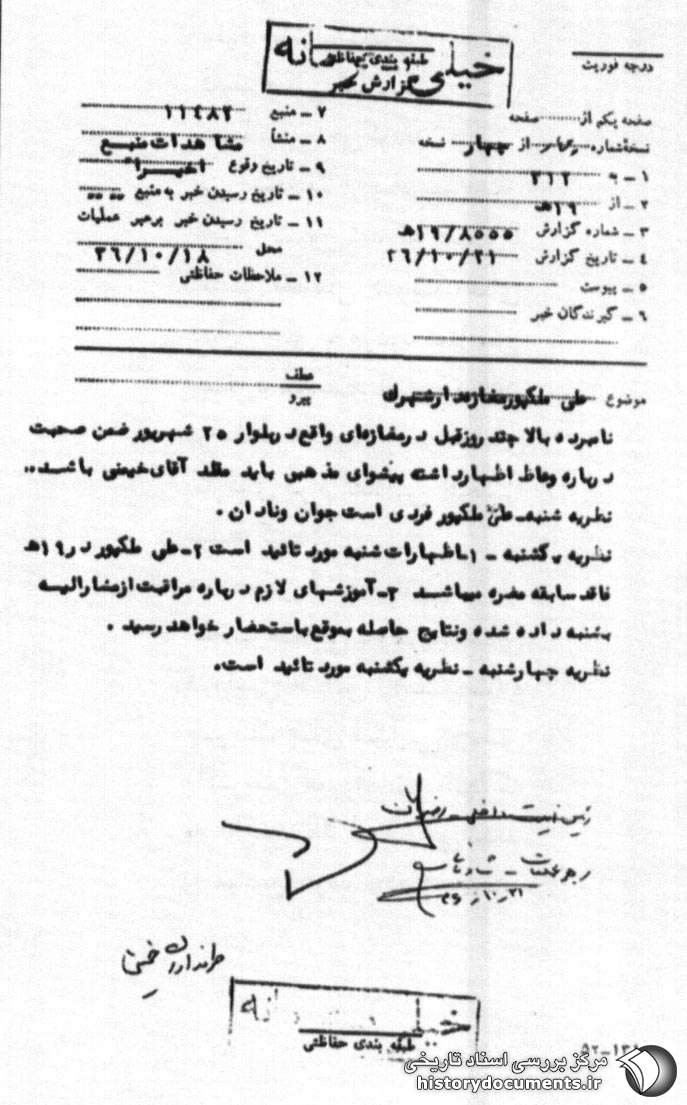 خیلی محرمانه
طبقه بندی حفاظتی
گزارش خبر
درجه فوریت
صفحه یکم از صفحه
نسخه شماره چهار از چهار نسخه
۱ – به ۳۱۲
۲ – از ۱۹ هـ
۳ – شماره گزارش ۱۹/۸۵۵۵ هـ
۴ – تاریخ گزارش ۳۶/۱۰/۲۱
۵ – پیوست
۶ – گیرندگان خبر
۷ – منبع ۱۱۴۸۲
۸ – منشأ مشاهدات منبع
۹ – تاریخ وقوع اخیراً
۱۰ – تاریخ رسیدن خبر به منبع
۱۱ – تاریخ رسیدن خبر برهبر عملیات
محل ۳۶/۱۰/۱۸
۱۲ – ملاحظات حفاظتی
موضوع علی ملکپور مغازه‌دار شهرک
عطف
پیرو
نامبرده بالا چند روز قبل در مغازه‌ای واقع در بلوار ۲۵ شهریور ضمن صحبت
درباره وعاظ اظهار داشته پیشوای مذهبی باید مقلد آقای خمینی باشد..
نظریه شنبه– علی ملکپور فردی است جوان و نادان .
نظریه یکشنبه – ۱–اظهارات شنبه مورد تائید است ۲–علی ملکپور در ۱۹هـ
فاقد سابقه مضره میباشد ۳–آموزشهای لازم درباره مراقبت از مشارالیه
بشنبه داده شده و نتایج حاصله بموقع باستحضار خواهد رسید .
نظریه چهارشنبه – نظریه یکشنبه مورد تائید است.
رئیس امنیت داخلی – رضوان
رهبر عملیات –
۳۶/۱۰/۲۱
طبقه بندی حفاظتی
مرکز بررسی اسناد تاریخی
historydocuments.ir